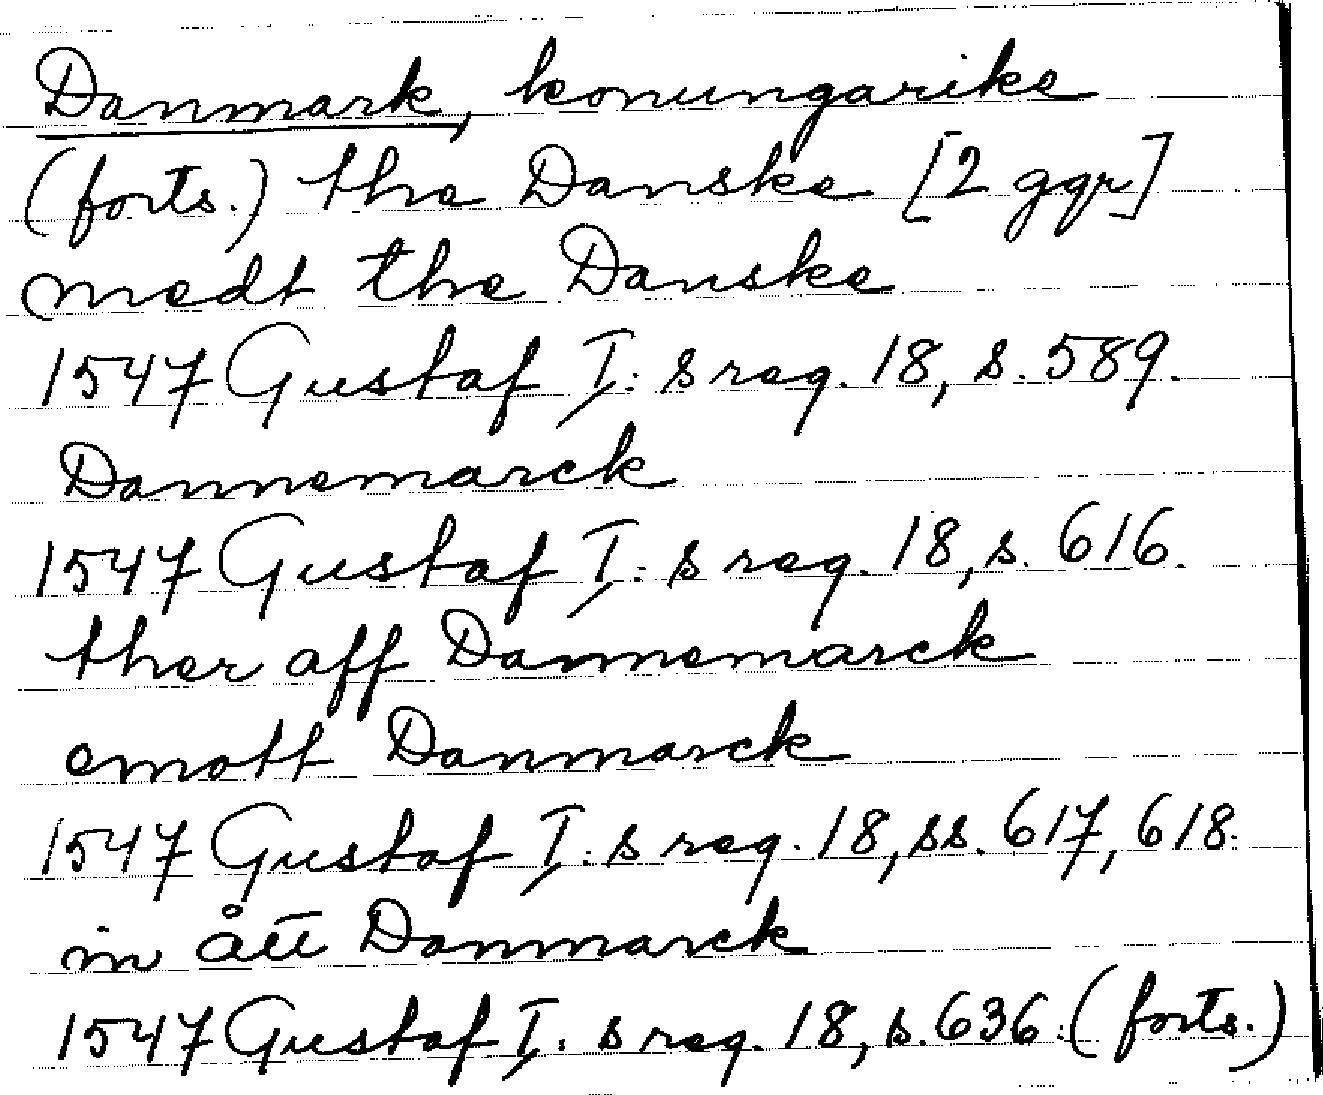 Danmark, konungarike
(forts.) the Danske [2 ggr]
medt the Danske
1547 Gustaf I:s reg. 18, s. 589.
Dannemarck
1547 Gustaf I:s reg. 18, s. 616.
ther aff Dannemarck
emott Danmarck
1547 Gustaf I:s reg. 18, ss. 617, 618.
in ått Danmarck
1547 Gustaf I:s reg. 18, s. 636. (forts.)